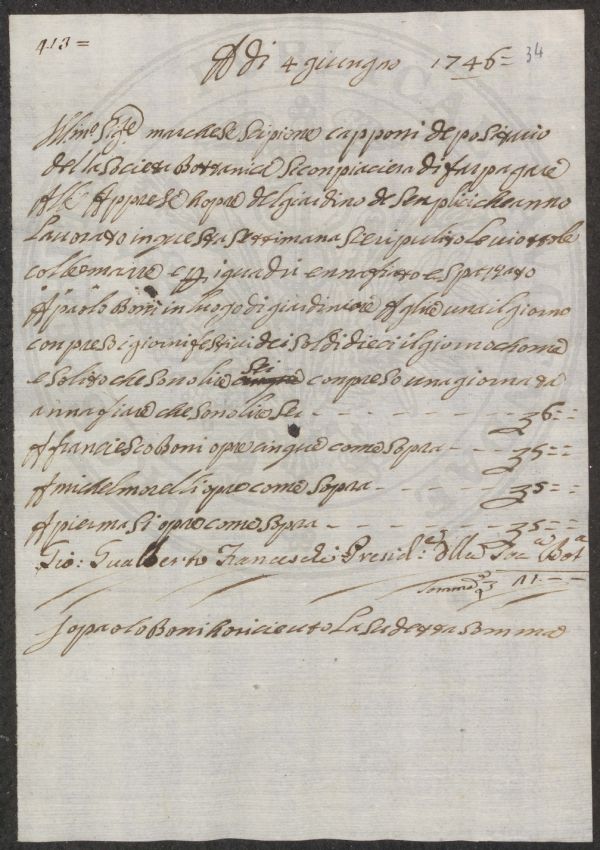 413 =
34
A di 4 giungno 1746 =
Ill.mo Sig.re marchese Scipione capponi depositario
della Societa Bottanica Si conpiaciera di far pagare
Alle Apprese hopre del giardino de Senplici che anno
Lavorato in questa Settimana
colle marre e innafiato e spazato
A paolo Boni in luogo di giardiniere il giorno
conpreso i giorni festivi dei soldi dieci il giorno chome
e solito che sono lire cinque sei conpreso una giornata
annafiare che sono lire Sei - - - - - - - 6 = =
A franciesco Boni opre cinque come Sopra - - 5 = =
A michel morelli opre come Sopra - - - - - - 5 = =
A pier masi opre come Sopra - - - - - - 5 = =
Gio: Gualberto Franceschi Presid.e della Soc.a Bot.a
Somma 21 - -
Io paolo Boni ho riceuto La Sudetta Somma